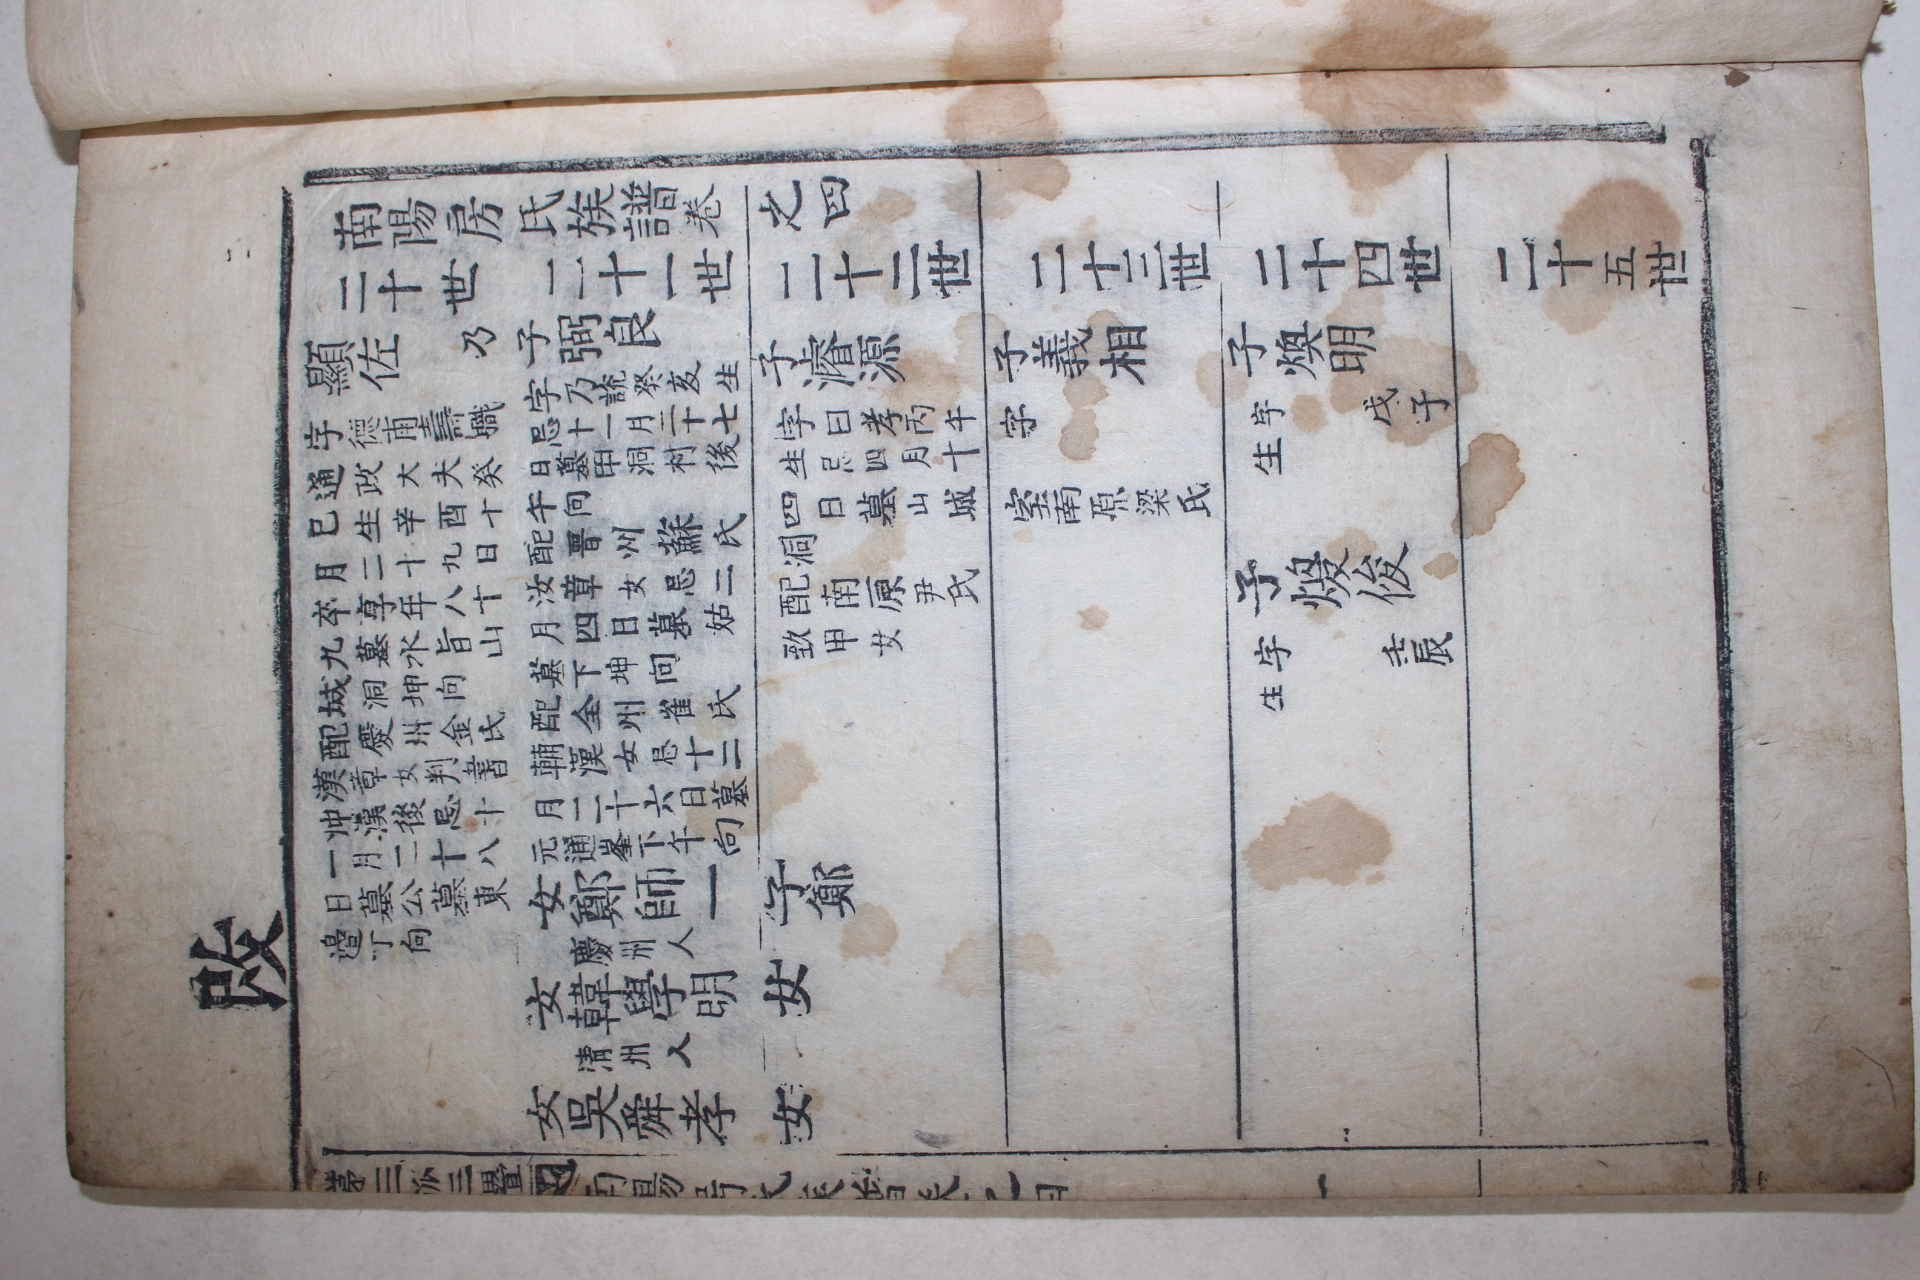 改
南陽房氏族譜卷之四
二十世
二十一世
二十二世
二十三世
二十四世
二十五世
顯佐
乃
字德甫壽職
通政大夫癸
巳生辛酉十
月二十九日
卒享年八十
九墓水旨山
城洞坤向
配慶州金氏
漢章女判書
冲漢後忌十
一月二十八
日墓公墓東
邉丁向
子弼良
字乃說癸亥生
忌十一月二十七
日墓甲洞村後
午向
配晋州蘇氏
汝章女忌二
月四日墓姑
墓下坤向
配全州崔氏
輔漢女忌十二
月二十六日墓
元通峯下午向
女鄭師一
慶州人
女韓學明
清州人
女吳舜孝
子濬源
字曰孝丙午
生忌四月十
四日墓山城
洞
配南原尹氏
致甲女
子鄭
女
女
子義相
字
室南原梁氏
子煥明
字 戊子
生
子煖俊
字 壬辰
生
南陽房氏族譜卷之四
一